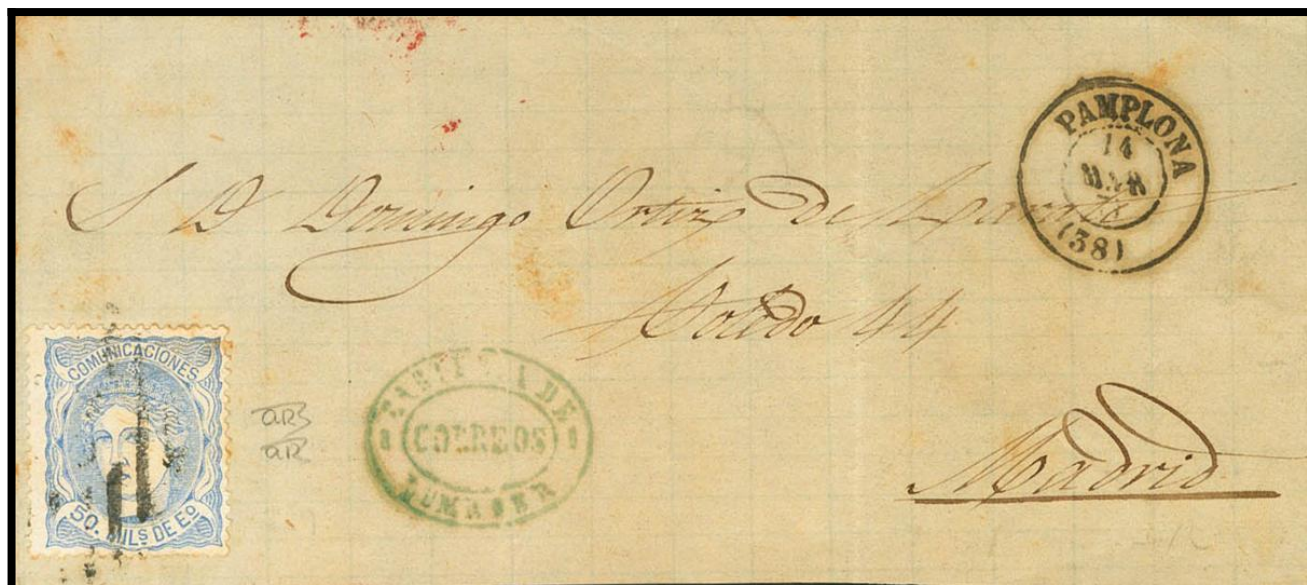 PAMPLONA
14
MAR
(38)
S D Domingo Ortiz de
Toledo 44
Madrid
COMUNICACIONES
50. MILS DE EO
CARTERIA DE
CORREOS
LUMBIER